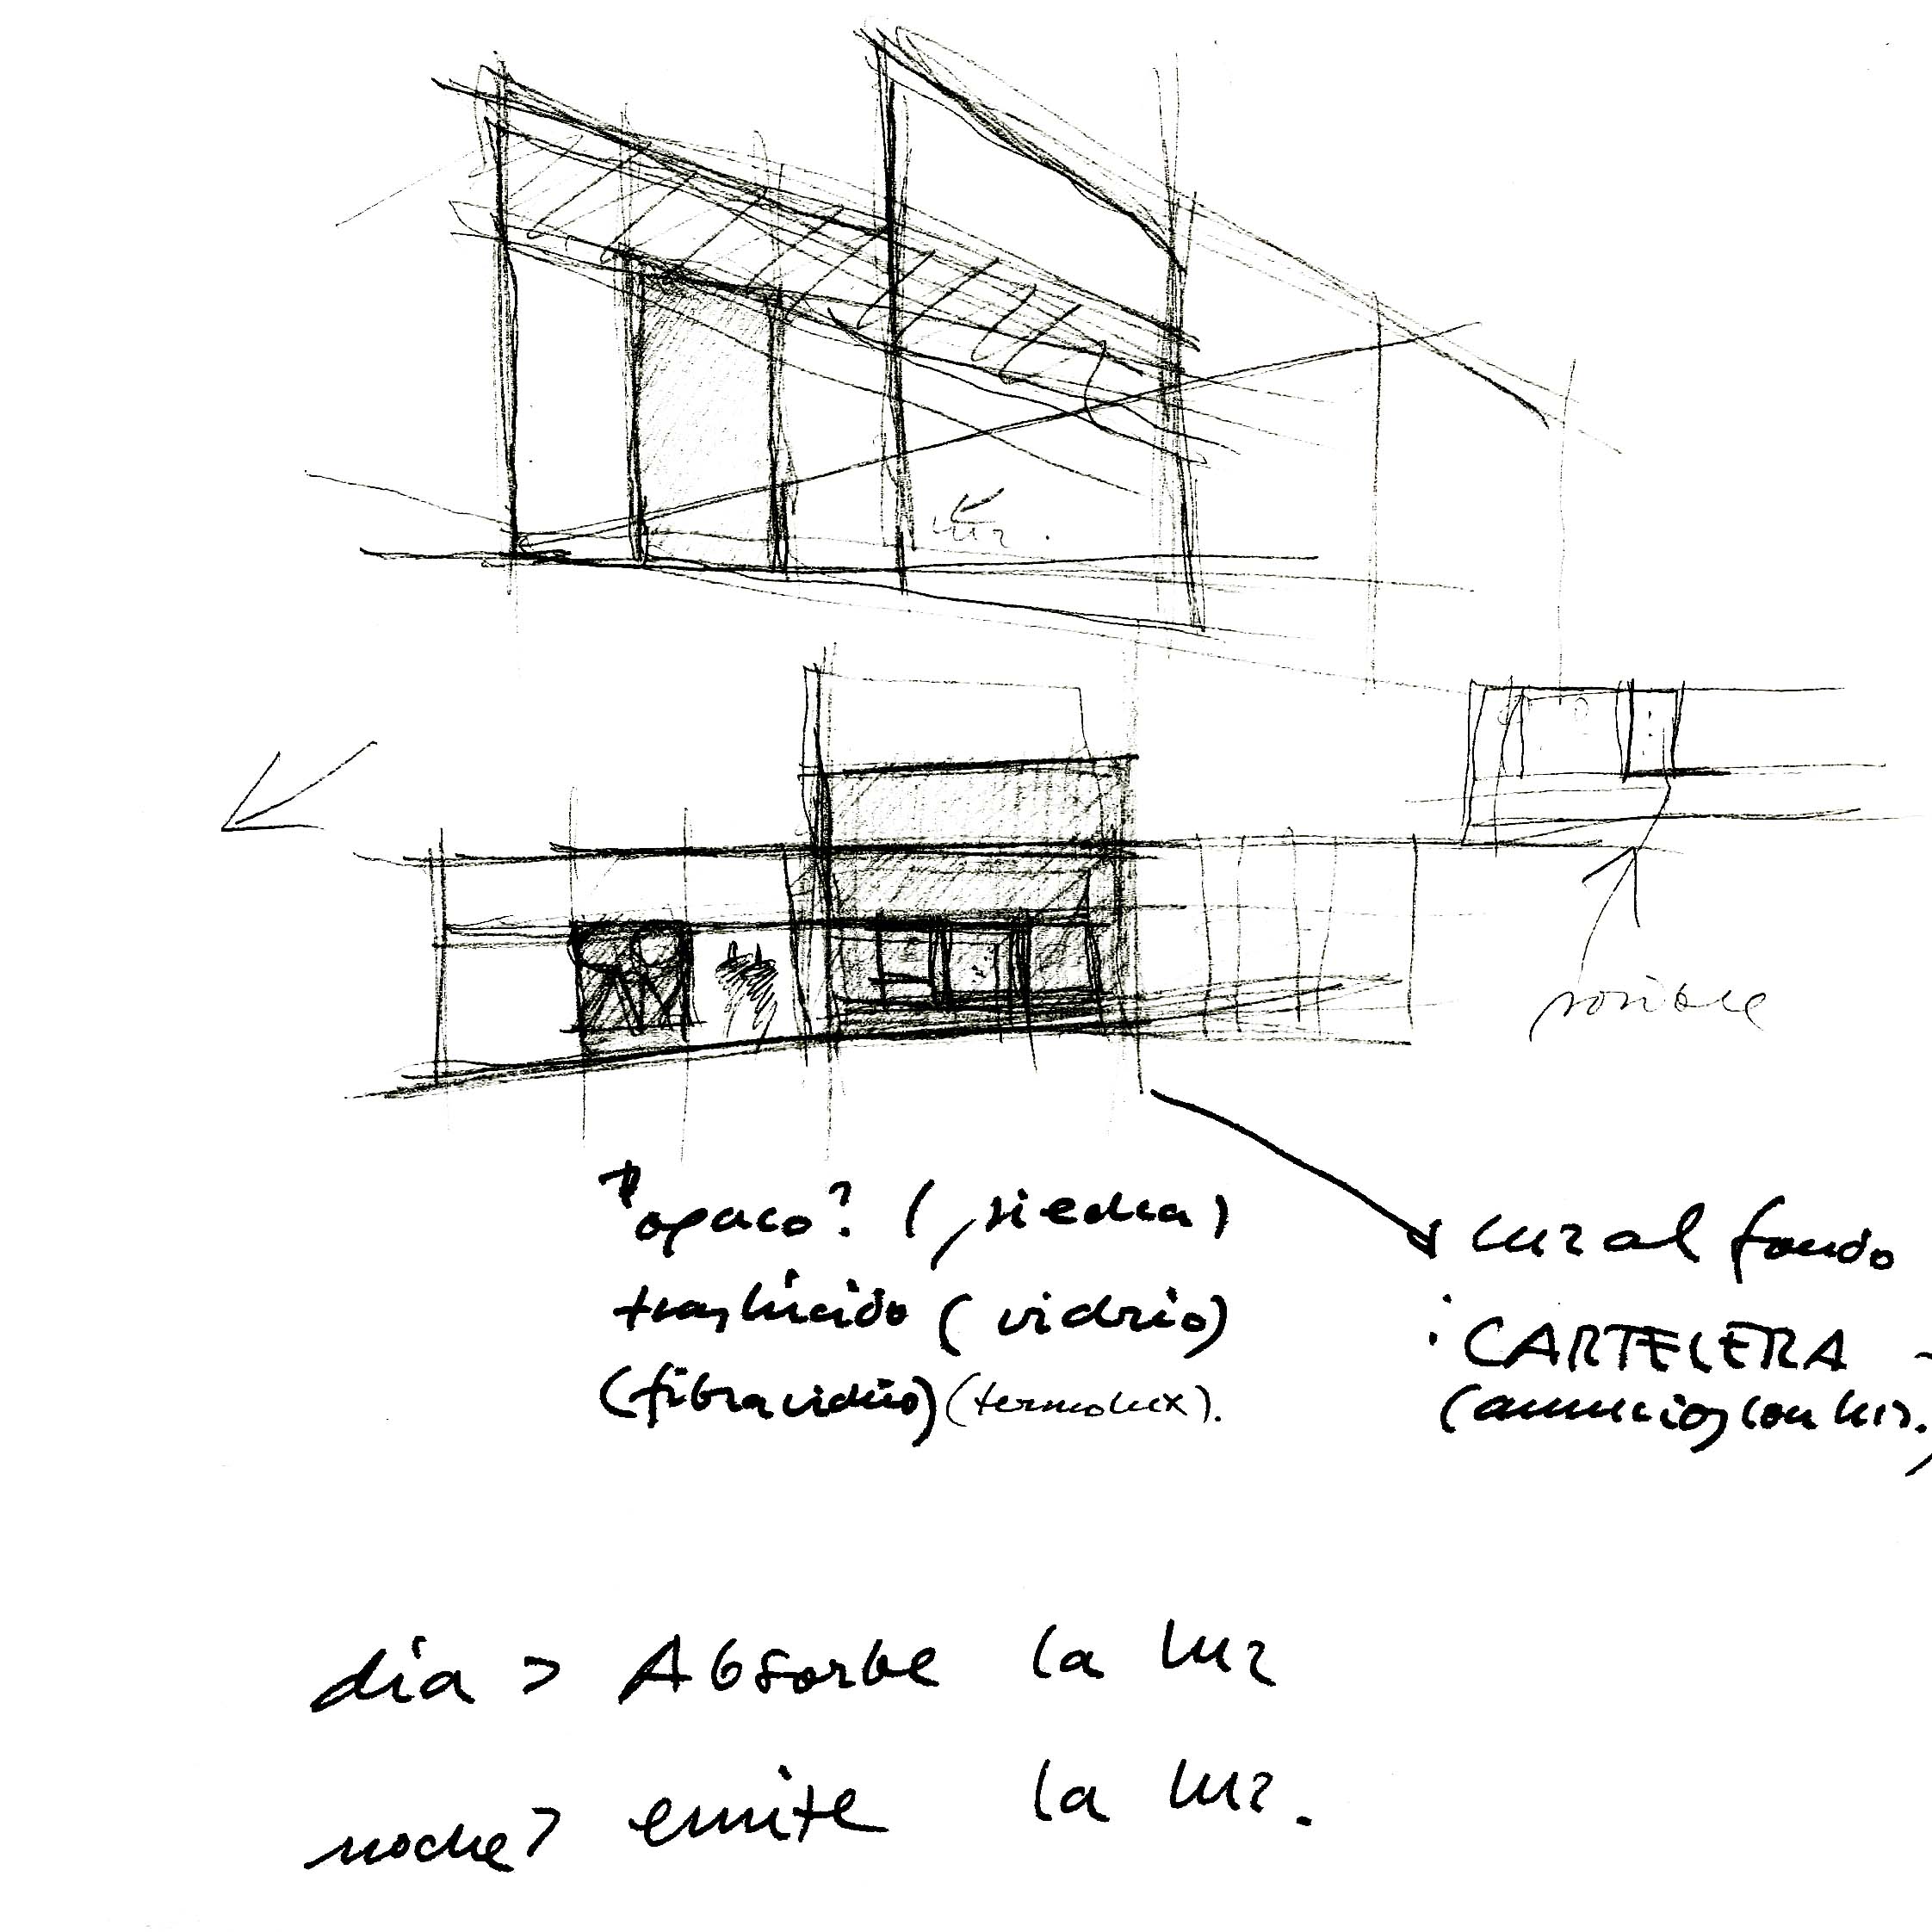 luz.
posible
opaco? (piedra)
traslúcido (vidrio)
(fibra vidrio) (termolux).
luz al fondo
: CARTELERA
(anuncios con luz.)
día > Absorbe la luz
noche > emite la luz.